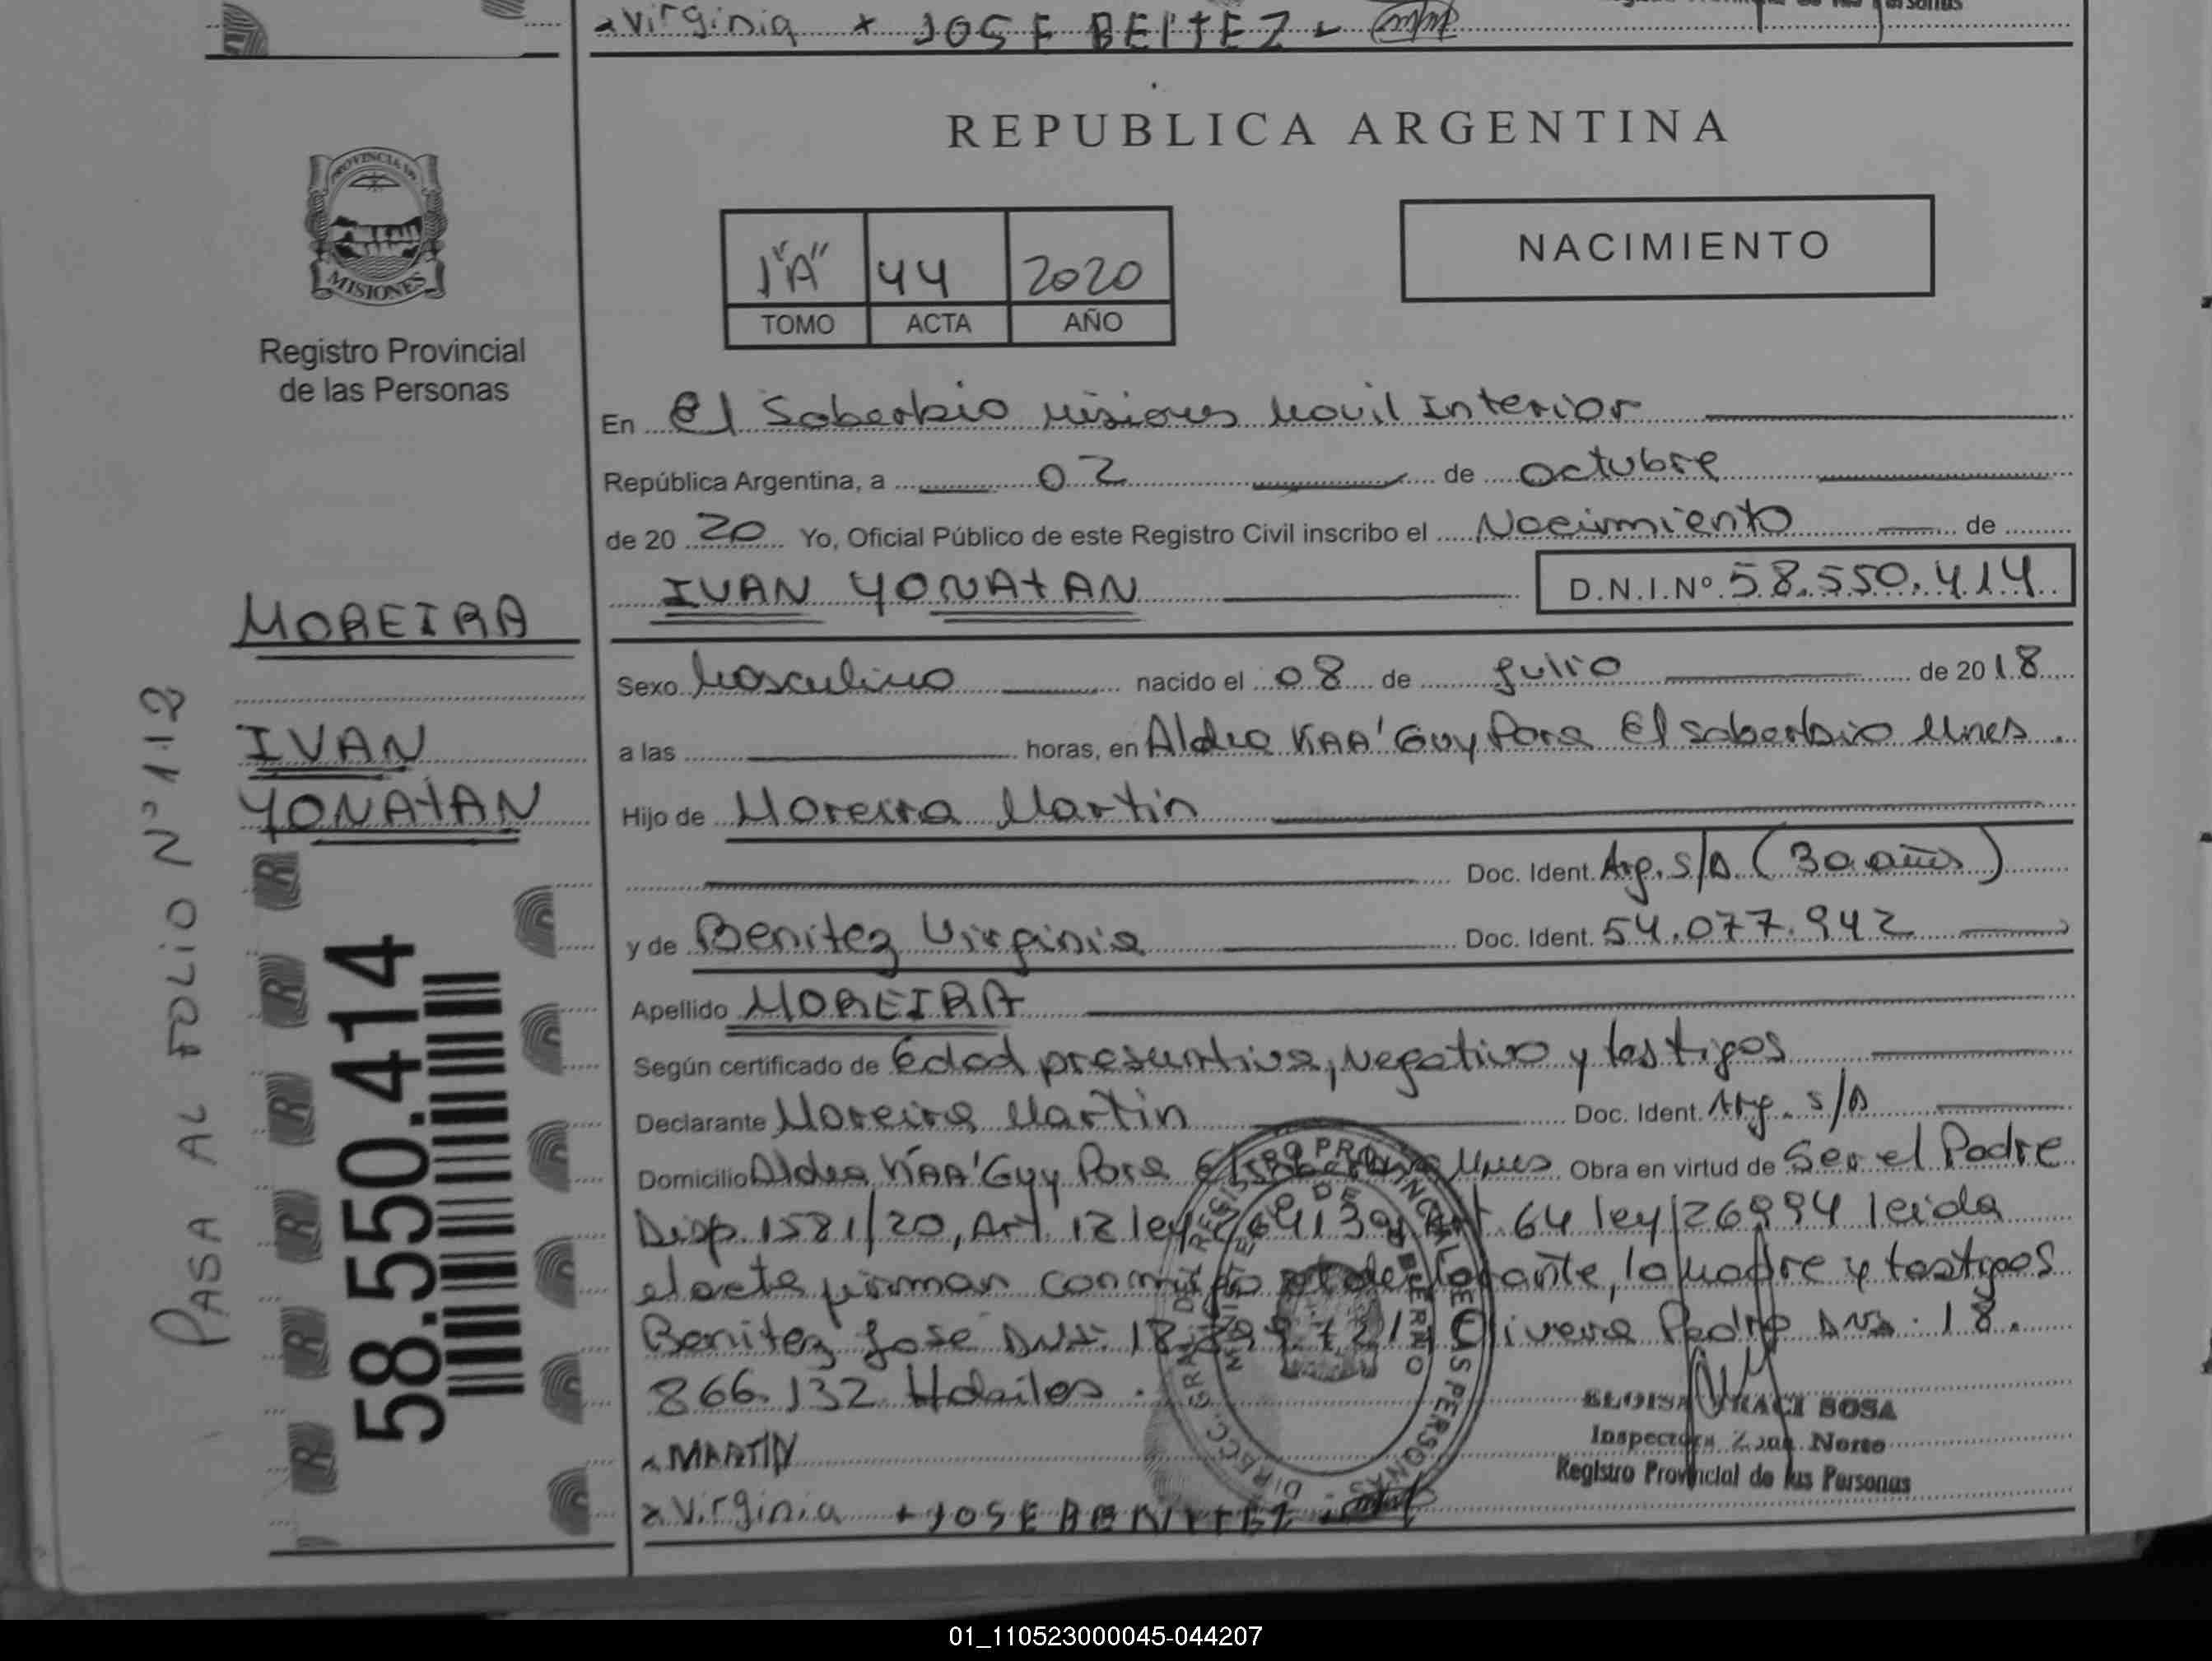 x Virginia + JOSE BEITEZ
PROVINCIA DE
MISIONES
Registro Provincial
de las Personas
REPUBLICA ARGENTINA
1"A" 44 2020
TOMO ACTA AÑO
NACIMIENTO
En El Soberbio Misiones Movil Interior
República Argentina, a 02 de octubre
de 20 20 Yo, Oficial Público de este Registro Civil inscribo el Nacimiento de
IVAN YONATAN D.N.I.Nº 58.550.414
MOREIRA
IVAN
YONATAN
PASA AL FOLIO Nº 112
58.550.414
Sexo Masculino nacido el 08 de Julio de 20 18
a las horas, en Aldea KAA'Guy Pora El soberbio Mnes.
Hijo de Moreira Martin
Doc. Ident. Arg. S/D. (30 años)
y de Benitez Virginia Doc. Ident. 54.077.942
Apellido MOREIRA
Según certificado de Edad presuntiva, Negativo y testigos
Declarante Moreira Martin Doc. Ident. Arg. S/D
Domicilio Aldea KAA'Guy Pora El soberbio Mnes Obra en virtud de Ser el Padre
Disp. 1581/20, Art 12 ley 26413 Art. 64 ley 26994 leida
el acta firman conmigo el declarante, la Madre y testigos
Benitez Jose DNI: 18. Olivera Pedro DNI. 18.
866.132 Habiles.
x MARTIN
x Virginia + JOSE BENITEZ
ELOISA IRACI SOSA
Inspectora Zona Norte
Registro Provincial de las Personas
DIRECC. GRAL. DEL REGISTRO PROVINCIAL DE LAS PERSONAS
MINISTERIO DE GOBIERNO
01_110523000045-044207